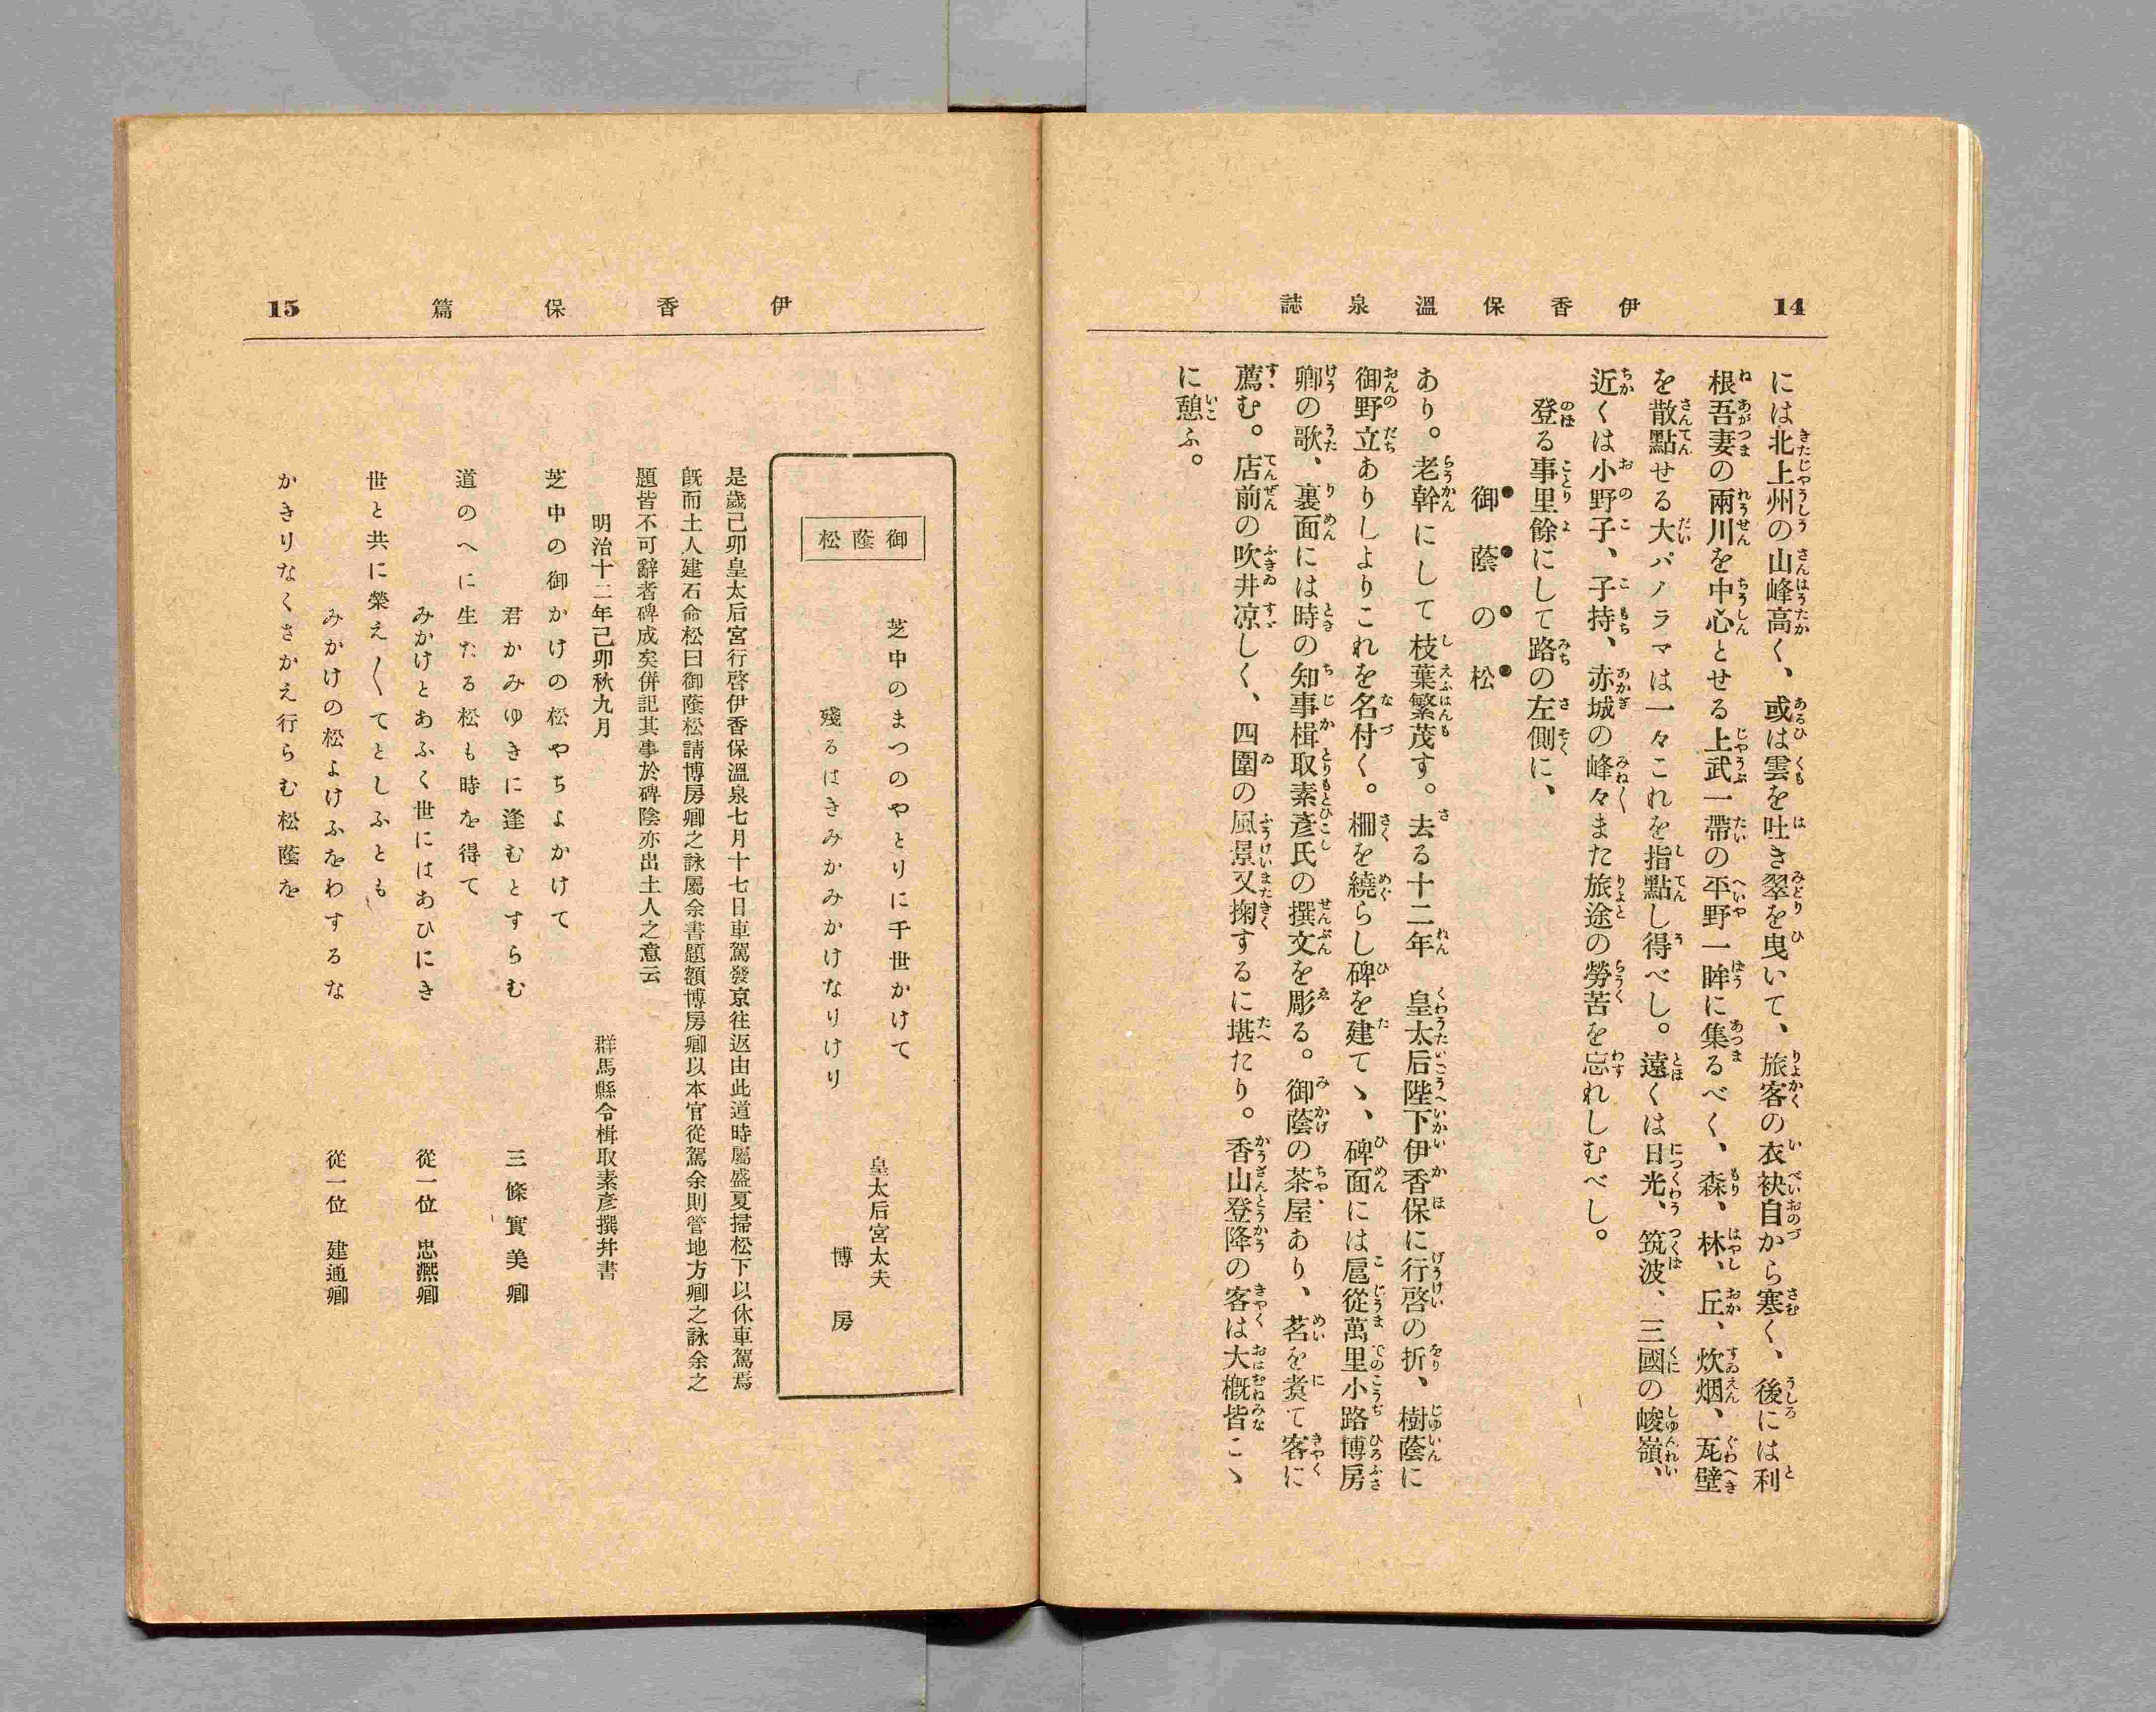 14
伊香保溫泉誌
には北上州の山峰高く、或は雲を吐き翠を曳いて、旅客の衣袂自から寒く、後には利
根吾妻の兩川を中心とせる上武一帶の平野一眸に集るべく、森、林、丘、炊烟、瓦壁
を散點せる大パノラマは一々これを指點し得べし。遠くは日光、筑波、三國の峻嶺、
近くは小野子、子持、赤城の峰々また旅途の勞苦を忘れしむべし。
登る事里餘にして路の左側に、
御蔭の松
あり。老幹にして枝葉繁茂す。去る十二年　皇太后陛下伊香保に行啓の折、樹蔭に
御野立ありしよりこれを名付く。柵を繞らし碑を建てゝ、碑面には扈從萬里小路博房
卿の歌、裏面には時の知事楫取素彥氏の撰文を彫る。御蔭の茶屋あり、茗を煑て客に
薦む。店前の吹井凉しく、四圍の風景又掬するに堪たり。香山登降の客は大槪皆こゝ
に憩ふ。
伊香保篇
15
御蔭松
芝中のまつのやとりに千世かけて
殘るはきみかみかけなりけり
皇太后宮太夫
博房
是歲己卯皇太后宮行啓伊香保溫泉七月十七日車駕發京往返由此道時屬盛夏掃松下以休車駕焉
旣而土人建石命松曰御蔭松請博房卿之詠屬余書題額博房卿以本官從駕余則管地方卿之詠余之
題皆不可辭者碑成矣併記其事於碑陰亦出土人之意云
明治十二年己卯秋九月
群馬縣令楫取素彥撰幷書
芝中の御かけの松やちよかけて
君かみゆきに逢むとすらむ
三條實美卿
道のへに生たる松も時を得て
みかけとあふく世にはあひにき
從一位　忠凞卿
世と共に榮え〳〵てとしふとも
みかけの松よけふをわするな
從一位　建通卿
かきりなくさかえ行らむ松蔭を